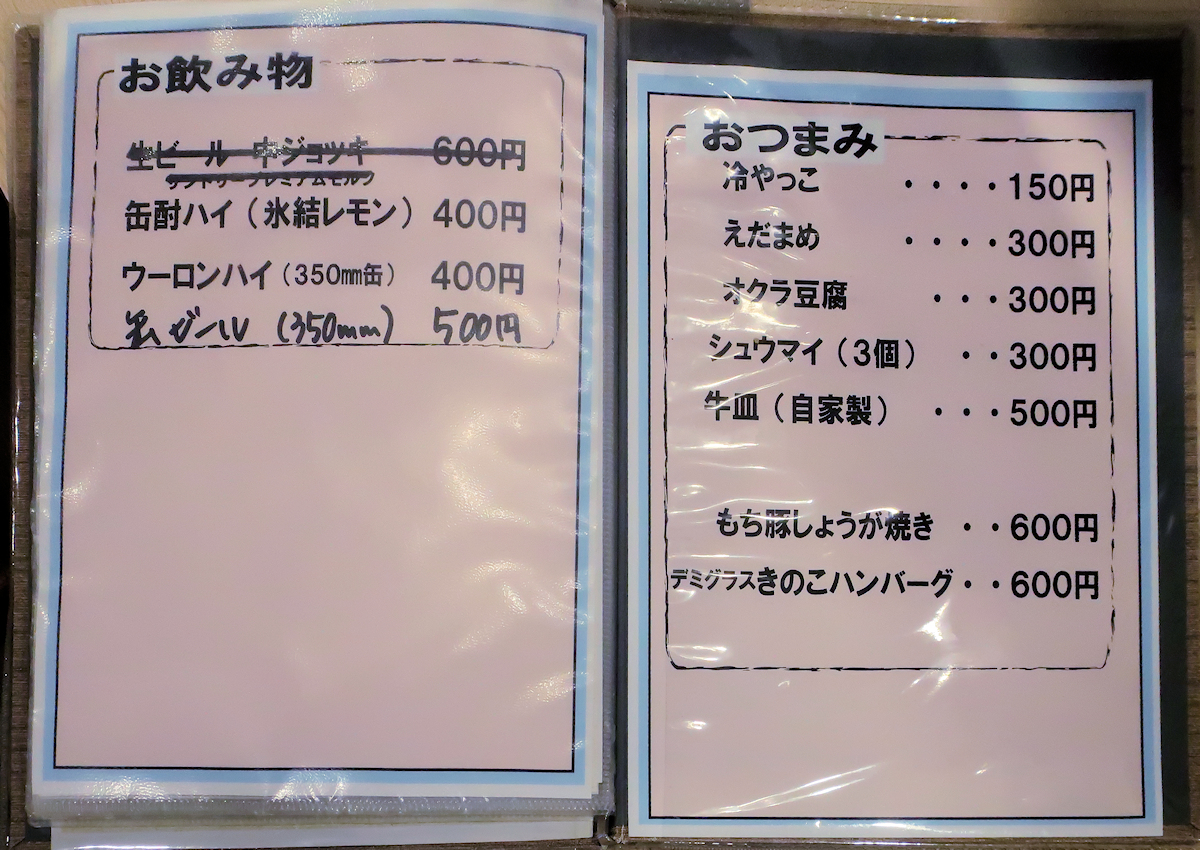 お飲み物
生ビール 中ジョッキ 600円
サントリープレミアムモルツ
缶酎ハイ（氷結レモン） 400円
ウーロンハイ（350㎜缶） 400円
缶ビール (350mm) 500円
おつまみ
冷やっこ ・・・・150円
えだまめ ・・・・300円
オクラ豆腐 ・・・300円
シュウマイ（3個） ・・300円
牛皿（自家製） ・・・500円
もち豚しょうが焼き ・・600円
デミグラスきのこハンバーグ・・600円